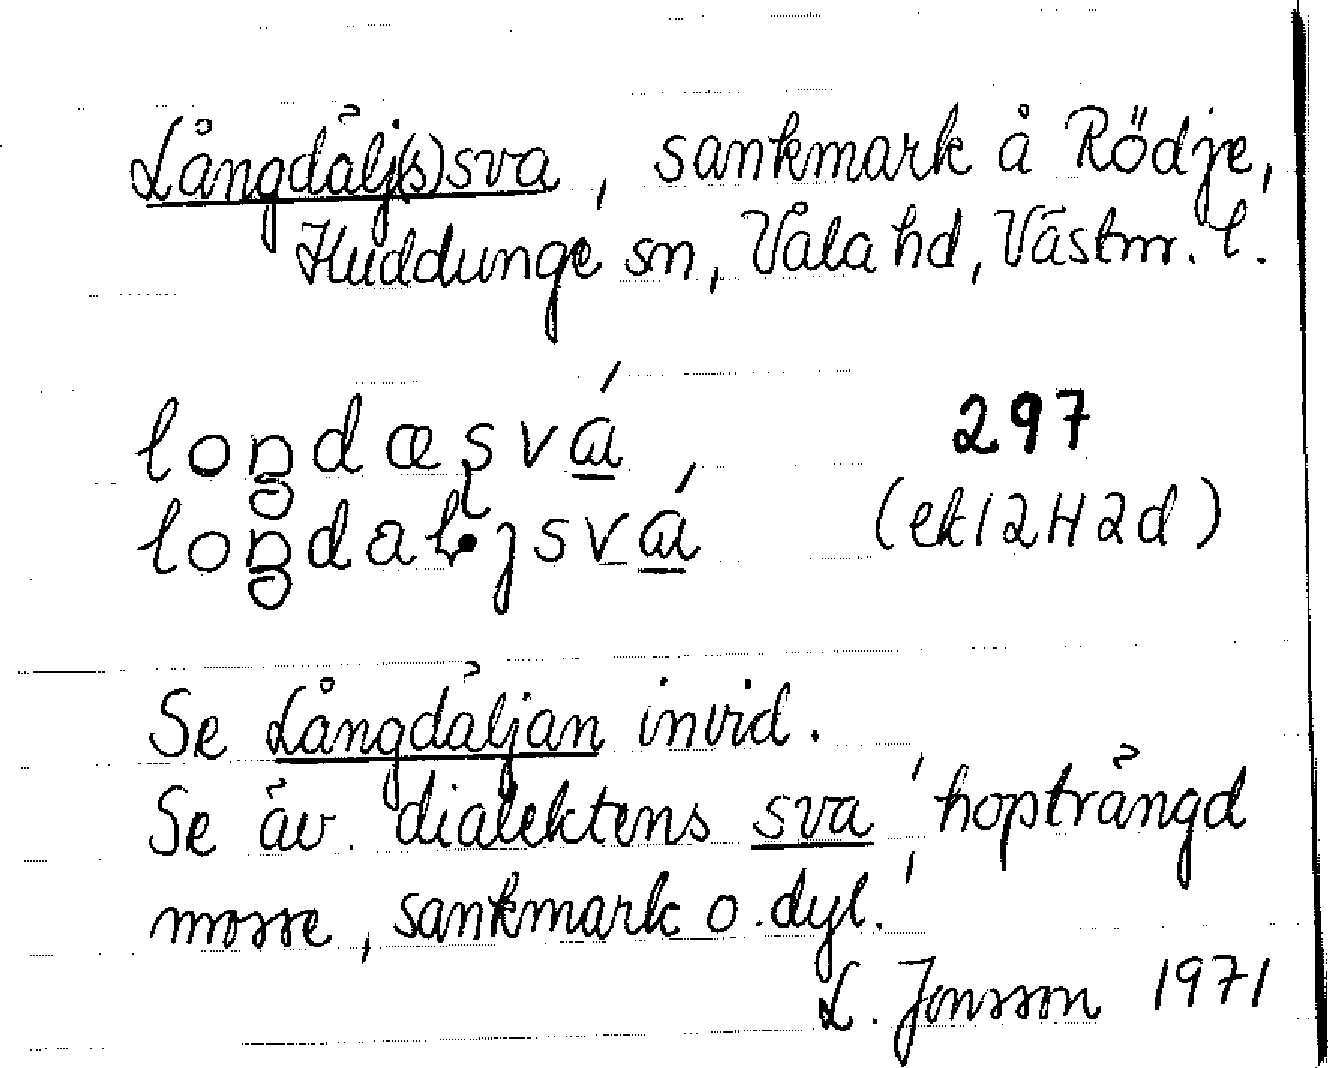 Långdälj(s)sva, sankmark å Rödje,
Huddunge sn, Våla hd, Västm. l.
297
(ek 12H2d)
Se Långdäljan invid.
Se äv. dialektens sva 'hopträngd
mosse, sankmark o.dyl.'
L. Jonsson 1971